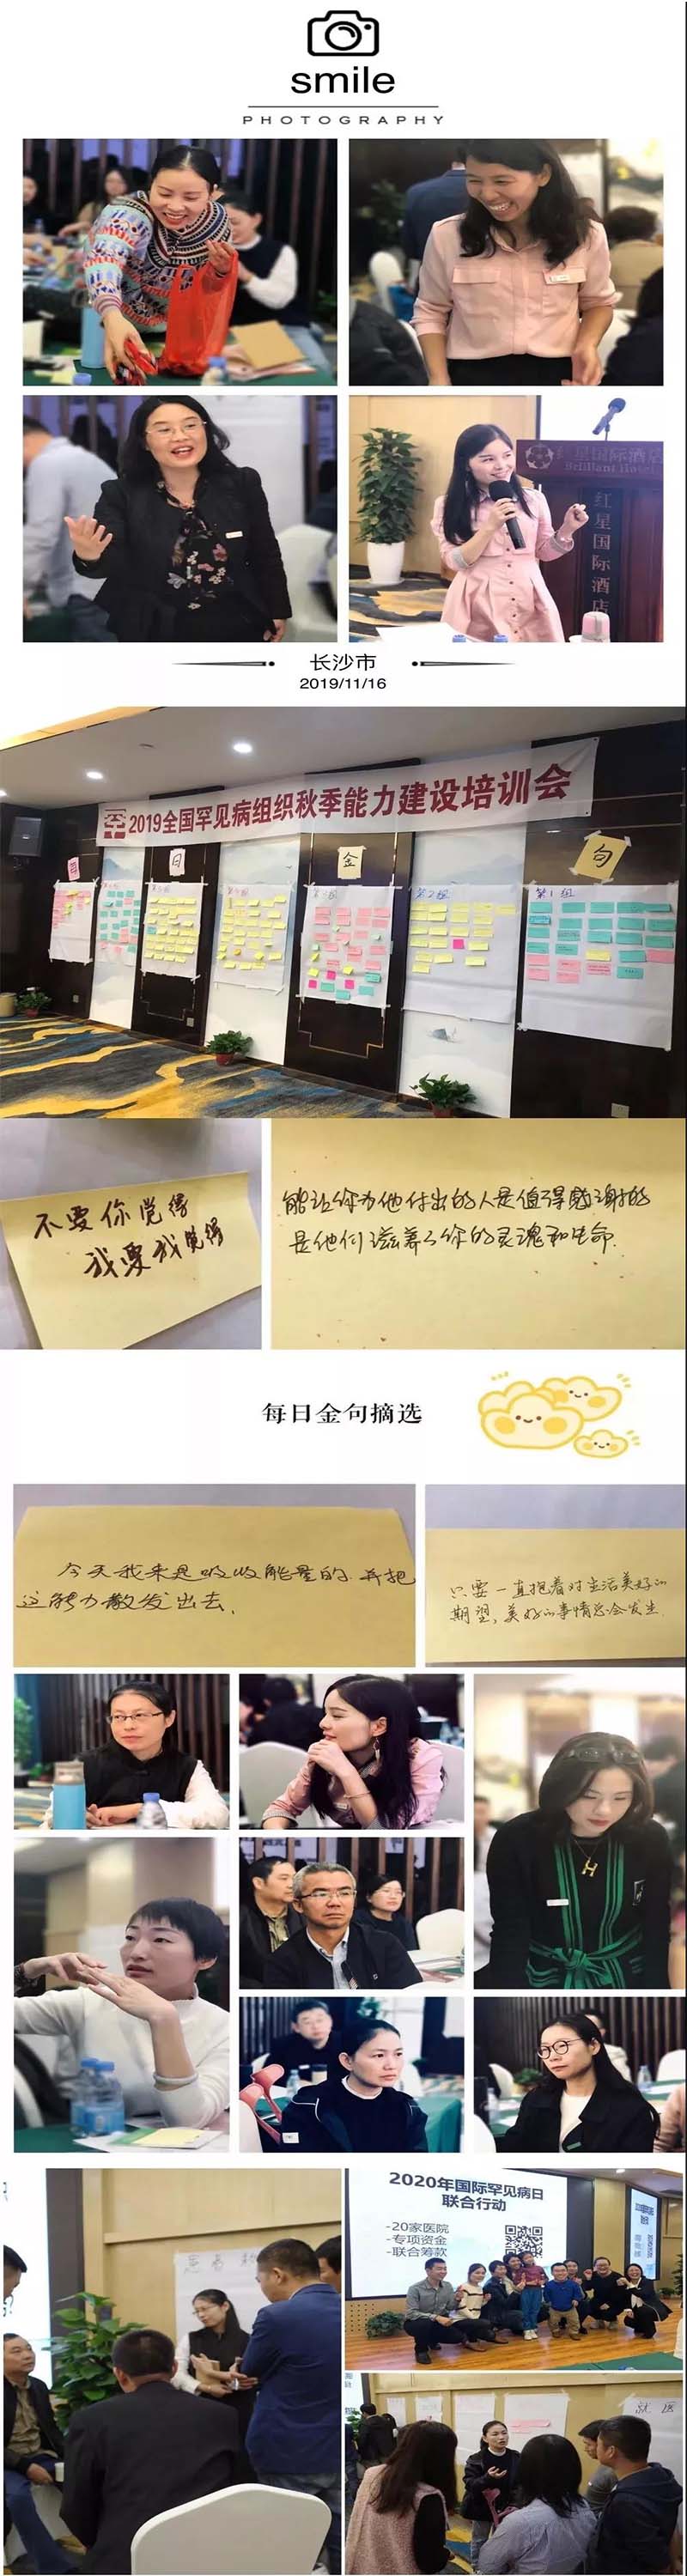 smile
PHOTOGRAPHY
红星国际酒店
Brilliant Hotel
红星国际酒店
长沙市
2019/11/16
2019全国罕见病组织秋季能力建设培训会
每 日 金 句
第2组
第1组
不要你觉得
我要我觉得
能让你为他付出的人是值得感谢的
是他们滋养了你的灵魂和生命.
每日金句摘选
今天我来是吸收能量的.并把
这能力散发出去.
只要一直抱着对生活美好的
期望,美好的事情总会发生.
2020年国际罕见病日
联合行动
-20家医院
-专项资金
-联合筹款
就医